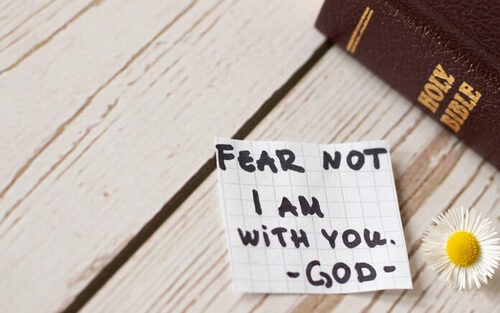 HOLY
BIBLE
FEAR NOT
I AM
WITH YOU.
-GOD-